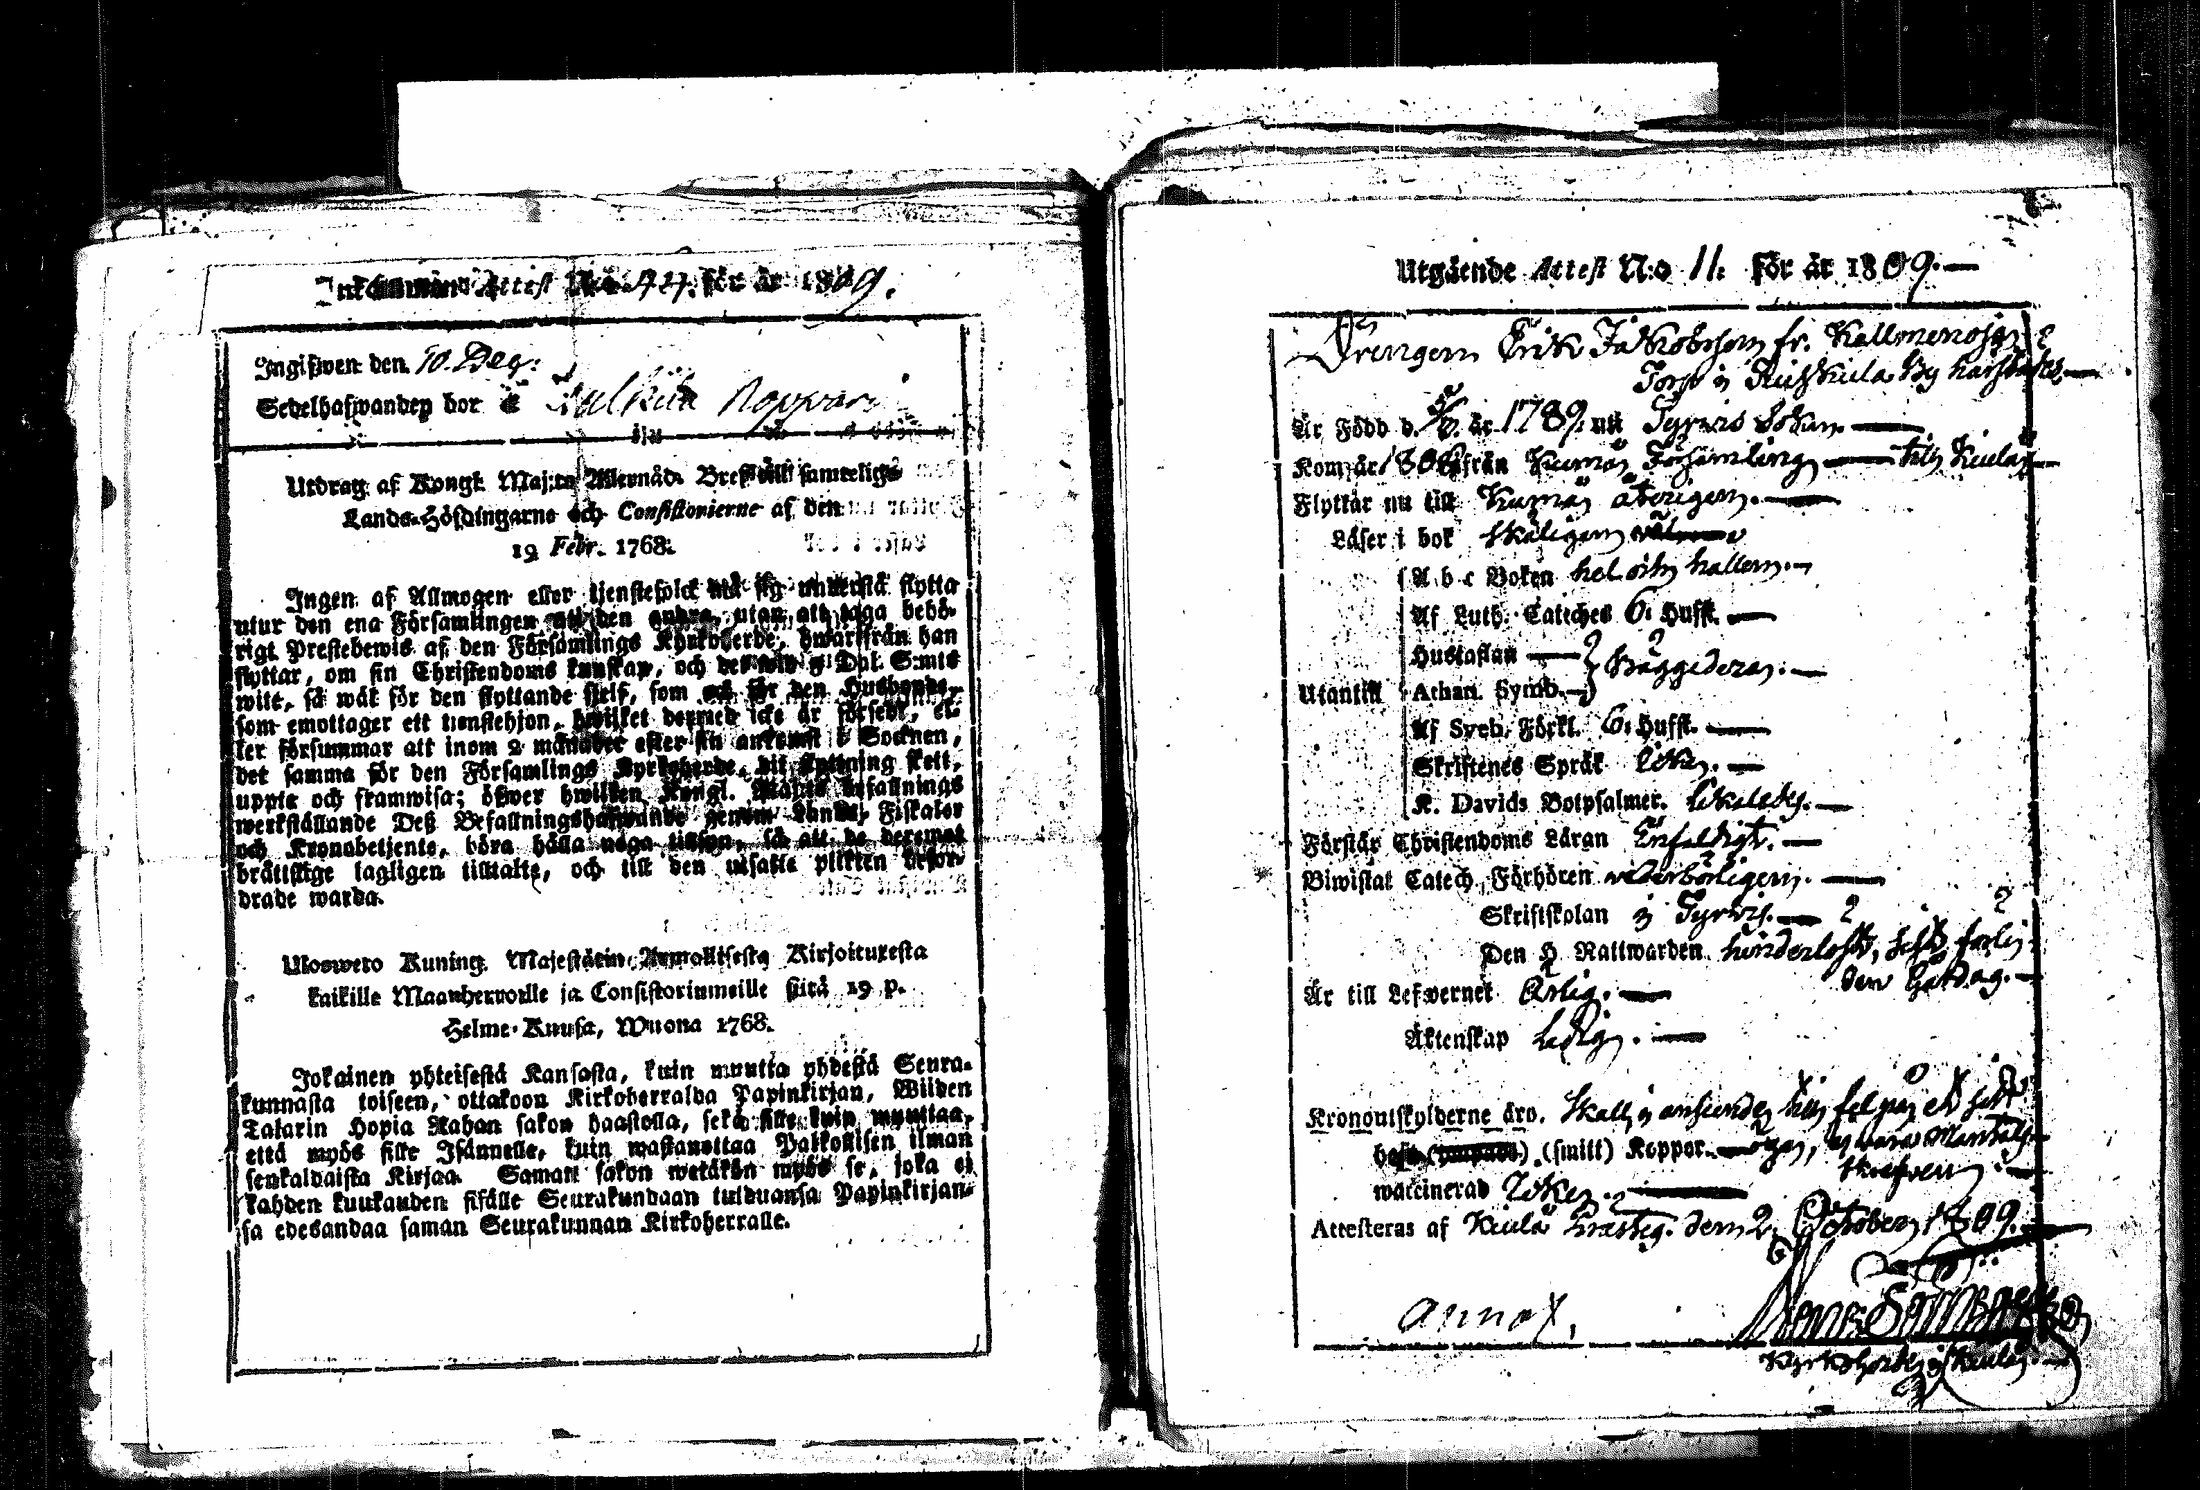 Inkommen Attest N:o 44. för år 1809.
Ingifwen den 10. Dec:
Sedelhafwanden bor å Sulkila Noppari
Utdrag af Kongl. Maj:ts Allernåd. Bref till samtelige
Lands-Höfdingarne och Consistorierne af den
19 Febr. 1768.
Ingen af Allmogen eller tjenstefolck må sig understå flytta
utur den ena Församlingen till den andra, utan att taga behö-
rigt Prestebewis af den Församlings Kyrkoherde, hwarifrån han
flyttar, om sin Christendoms kunskap, och det wid 5 Dal. S:mts
wite, så wäl för den flyttande sjelf, som och för den Husbonde,
som emottager ett tienstehjon, hwilket dermed icke är försedt, el-
ler försummar att inom 2 månader efter sin ankomst i Socknen,
det samma för den Församlings Kyrkoherde, dit flyttning skett,
uppte och framwisa; öfwer hwilken Kongl. Maj:ts befallnings
werkställande Deß Befallningshafwande genom Lands, Fiskaler
och Kronobetjente, böra hålla noga tillsyn, så att de deremot
bråttslige lagligen tilltalte, och till den utsatta plikten befor-
drade warda.
Ulosweto Kuning. Majestätin Armollisesta Kirjoituxesta
kaikille Maanherroille ja Consistoriumeille siitä 19 p.
Helme-Kuusa, Wuona 1768.
Jokainen yhteisestä Kansasta, kuin muutta yhdestä Seura-
kunnasta toiseen, ottakoon Kirkoherralda Papinkirjan, Wiiden
Talarin Hopia Rahan sakon haastolla, sekä sille kuin muuttaa,
että myös sille Isännelle, kuin wastanottaa Palkollisen ilman
senkaldaista Kirjaa. Saman sakon wetäkön myös se, joka ei
kahden kuukauden sisälle Seurakundaan tulduansa Papinkirjan-
sa edesandaa saman Seurakunnan Kirkoherralle.
Utgående Attest N:o 11. för år 1809.
Drengen Erik Jakobsson fr.
Torp i By
Är Född d. 5/6. år 1789. uti Tyrwis Sokn.
Kom år 1806 från Kumo Församling till Kiula
Flyttar nu till Kumo återigen.
Läser i bok skäligen
A b c Boken hel och hållen.
Af Luth. Catches 6. Hufst.
Hustaflan
Athan. Symb. Bäggedera.
Utantill
Af Sveb. Förkl. 6. Hufst.
Skriftenes Språk
K. Davids Botpsalmer. likaledes.
Förstår Christendoms Läran Enfaldigt.
Biwistat Catech. Förhören wederbörligen.
Skriftskolan i Tyrwis.
Den H. Nattwarden. hinderlöst, sidst
den
Är till Lefwernet Ärlig.
Äktenskap Ledig.
Kronoutskylderne äro.
haft (smitt) Koppor.
waccinerad Icke.
Attesteras af Kiula Prästeg. den 2. October 1809.
annot.
Kyrkoherde i Kiula.